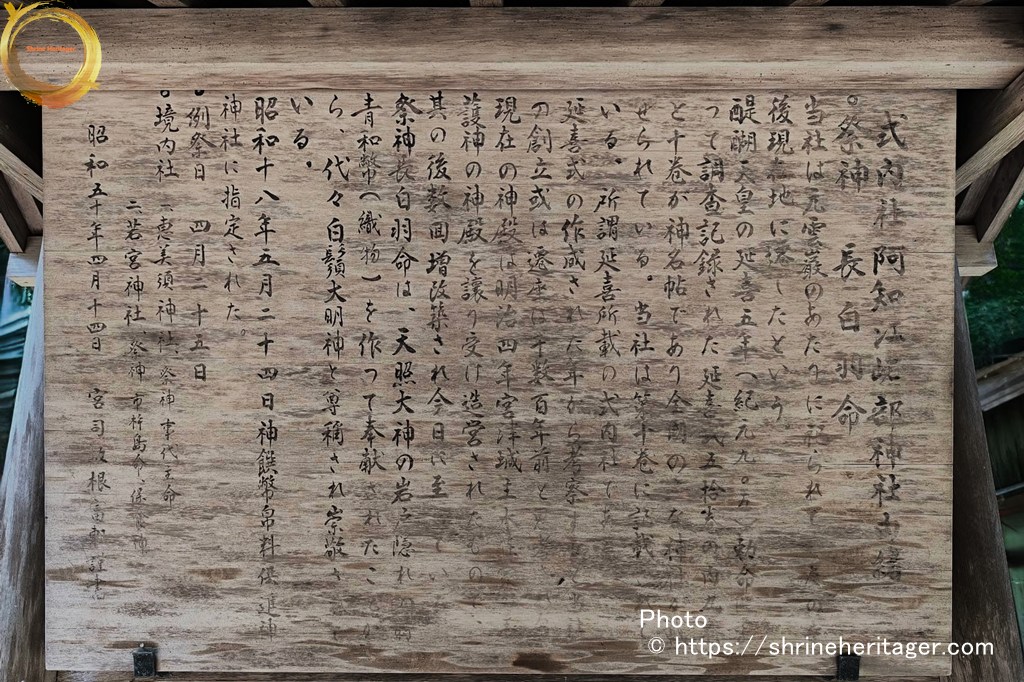 式内社 阿知江𡶌部神社由緒
祭神 長白羽命
当社は元雲巌のあたりに祀られて
後現在地に遷したという。
醍醐天皇の延喜五年(紀元九〇五)勅命
って調査記録された延喜式五拾巻の内
と十巻が神名帖であり全国の
せられている。当社は第十巻に記載
いる。所謂延喜所載の式内社であ
延喜式の作成された年から考察す
の創立或は遷座は千数百年前と
現在の神殿は明治四年宮津城主
護神の神殿を譲り受け造営されたもの
其の後数回増改築され今日に至 てい
祭神長白羽命は、天照大神の岩戸隠れ
青和幣(織物)を作って奉献されたこ
ら、代々白鬚大明神と尊稱され崇敬さ
いる。
昭和十八年五月二十四日神饌幣帛料供進神
神社に指定された。
例祭日 四月二十五日
境内社 一恵美須神社、祭神 事代主命
二若宮神社、祭神 市杵島命、保食神
昭和五十年四月十四日 宮司 根
Shrine Heritager
Photo
© https://shrineheritager.com